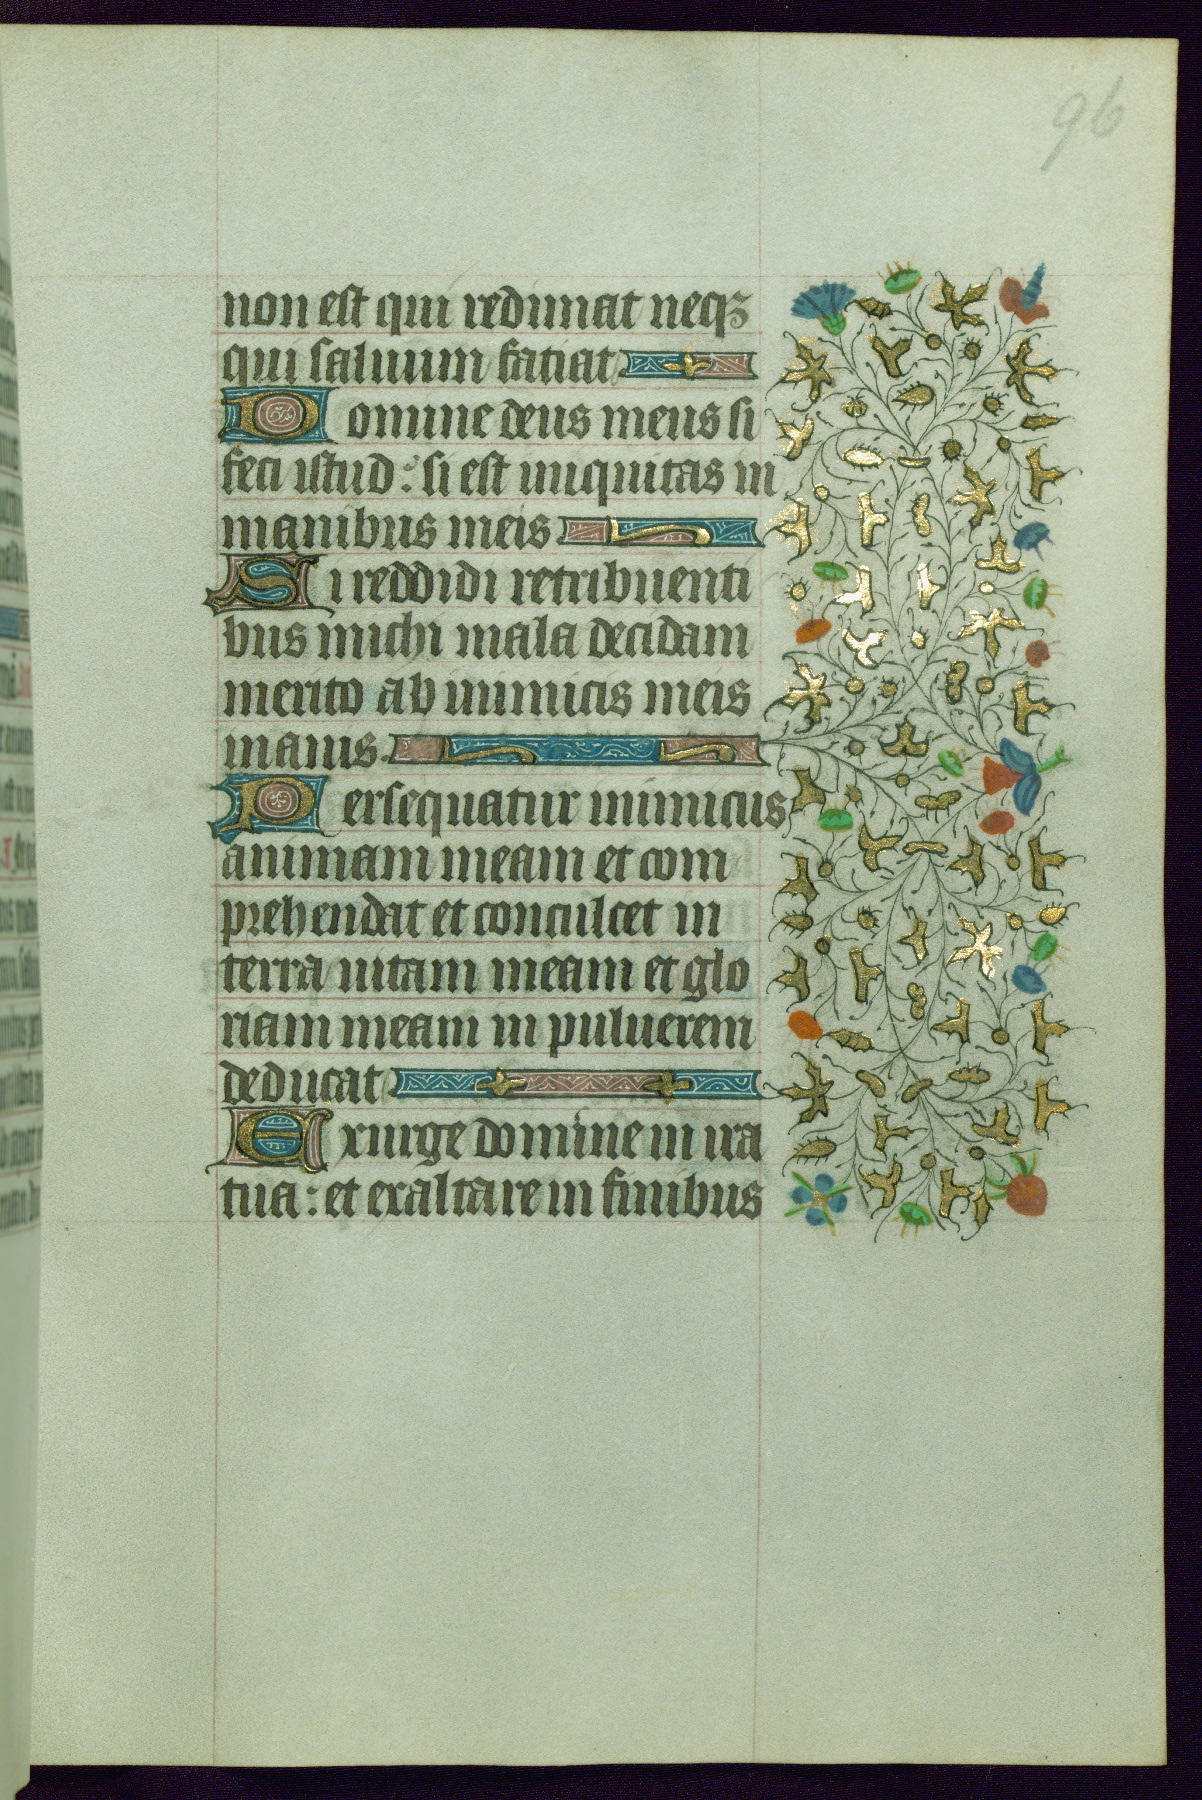 96
non est qui redimat neqꝫ
qui saluum faciat
Domine deus meus si
feci istud: si est iniquitas in
manibus meis
Si reddidi retribuenti
bus michi mala decidam
merito ab inimicis meis
inanis.
Persequatur inimicus
animam meam et com
prehendat et conculcet in
terra uitam meam et glo
riam meam in puluerem
deducat
Exurge domine in ira
tua: et exaltare in finibus